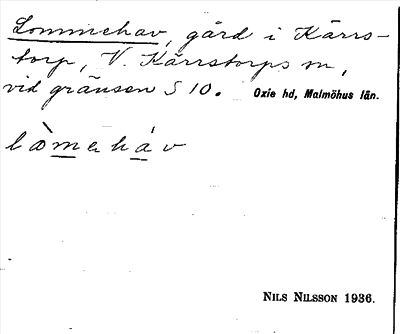 Lommehav, gård i Kärrs-
torp, V. Kärrstorps sn,
vid gränsen S 10. Oxie hd, Malmöhus län.
lòmehàv
NILS NILSSON 1936.